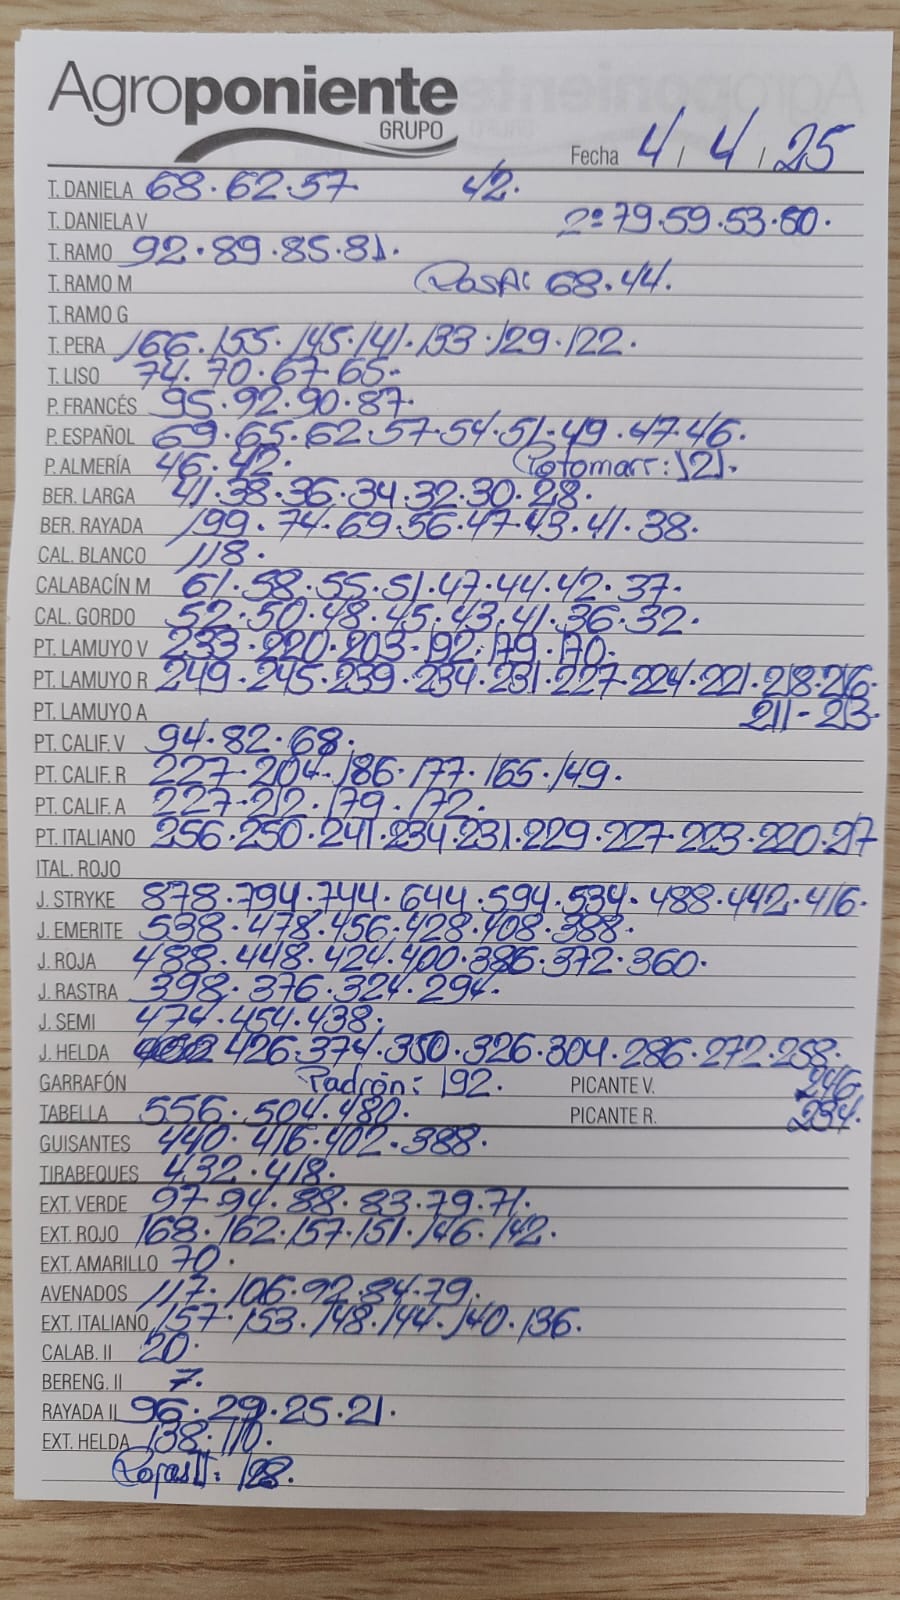 Agroponiente
GRUPO
Fecha 4 / 4 / 25
T. DANIELA 68.62.57. 42.
T. DANIELA V 2ª 79.59.53.50.
T. RAMO 92.89.85.81.
T. RAMO M Rosa: 68.44.
T. RAMO G
T. PERA 166.155.145.141.133.129.122.
T. LISO 74.70.67.65.
P. FRANCÉS 95.92.90.87.
P. ESPAÑOL 69.65.62.57.54.51.49.47.46.
P. ALMERÍA 46.42. Potomarr: 121.
BER. LARGA 41.38.36.34.32.30.28.
BER. RAYADA 199.74.69.56.47.43.41.38.
CAL. BLANCO 118.
CALABACÍN M 61.58.55.51.47.44.42.37.
CAL. GORDO 52.50.48.45.43.41.36.32.
PT. LAMUYO V 233.220.203.192.179.170.
PT. LAMUYO R 249.245.239.234.231.227.224.221.218.216.
PT. LAMUYO A 211-213.
PT. CALIF. V 94.82.68.
PT. CALIF. R 227.204.186.177.165.149.
PT. CALIF. A 227.212.179.172.
PT. ITALIANO 256.250.241.234.231.229.227.223.220.217
ITAL. ROJO
J. STRYKE 878.794.744.644.594.534.488.442.416.
J. EMERITE 538.478.456.428.408.388.
J. ROJA 488.448.424.400.386.372.360.
J. RASTRA 398.376.324.294.
J. SEMI 474.454.438.
J. HELDA 426.374.350.326.304.286.272.258.
GARRAFÓN Padrón: 192. PICANTE V. 246.
TABELLA 556.504.480. PICANTE R. 234.
GUISANTES 440.416.402.388.
TIRABEQUES 432.418.
EXT. VERDE 97.94.88.83.79.71.
EXT. ROJO 168.162.157.151.146.142.
EXT. AMARILLO 70.
AVENADOS 117.106.92.84.79.
EXT. ITALIANO 157.153.148.144.140.136.
CALAB. II 20.
BERENG. II 7.
RAYADA II 96.29.25.21.
EXT. HELDA 138.110.
Rojas II: 128.